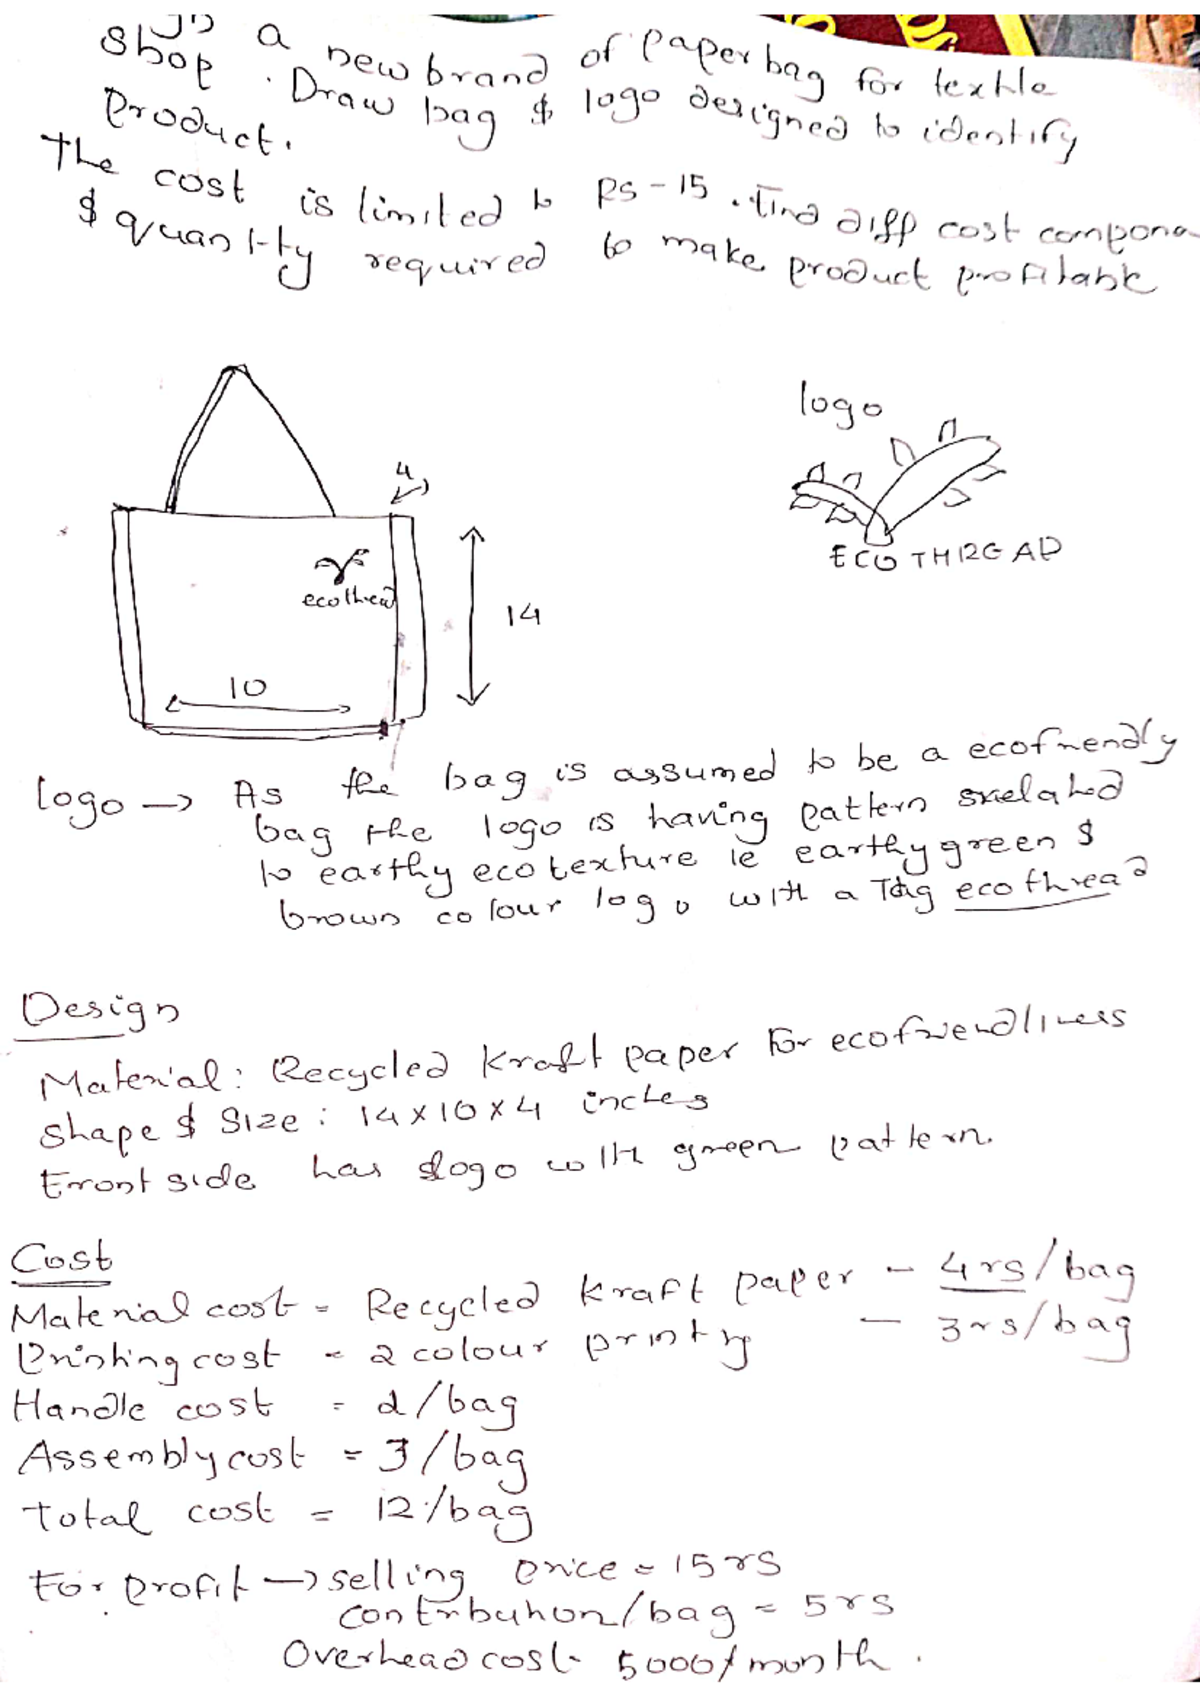 a new brand of paper bag for textile
shop. Draw bag & logo designed to identify
product.
The cost is limited to Rs-15. Find diff cost compone
& quantity required to make product profitable
logo
4
ECO THREAD
ecothread
14
10
logo → As the bag is assumed to be a ecofriendly
bag the logo is having pattern related
to earthy eco texture ie earthy green &
brown colour logo with a Tag ecothread
Design
Material: Recycled Kraft paper for ecofriendliness
shape & Size: 14 x 10 x 4 inches
Front side has logo with green pattern.
Cost
Material cost = Recycled kraft paper - 4rs/bag
Printing cost = 2 colour printing - 3rs/bag
Handle cost = 2/bag
Assembly cost = 3/bag
Total cost = 12/bag
For Profit → selling price = 15rs
contribution/bag = 5rs
Overhead cost- 5000/month.